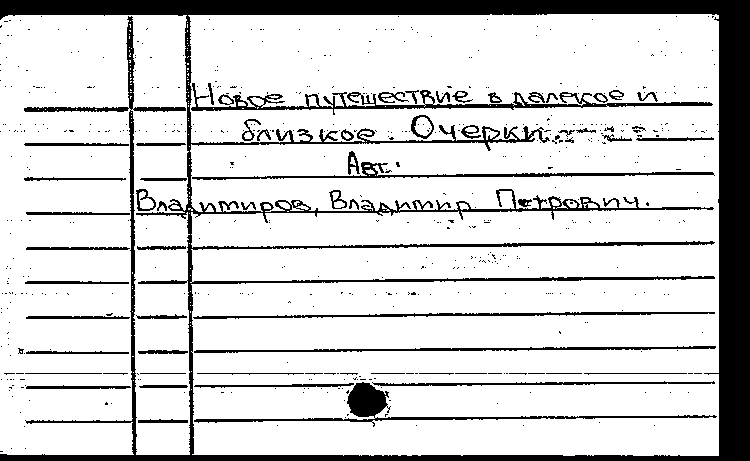 Новое путешествие в далекое и
близкое. Очерки.
Авт.
Владимиров, Владимир Петрович.